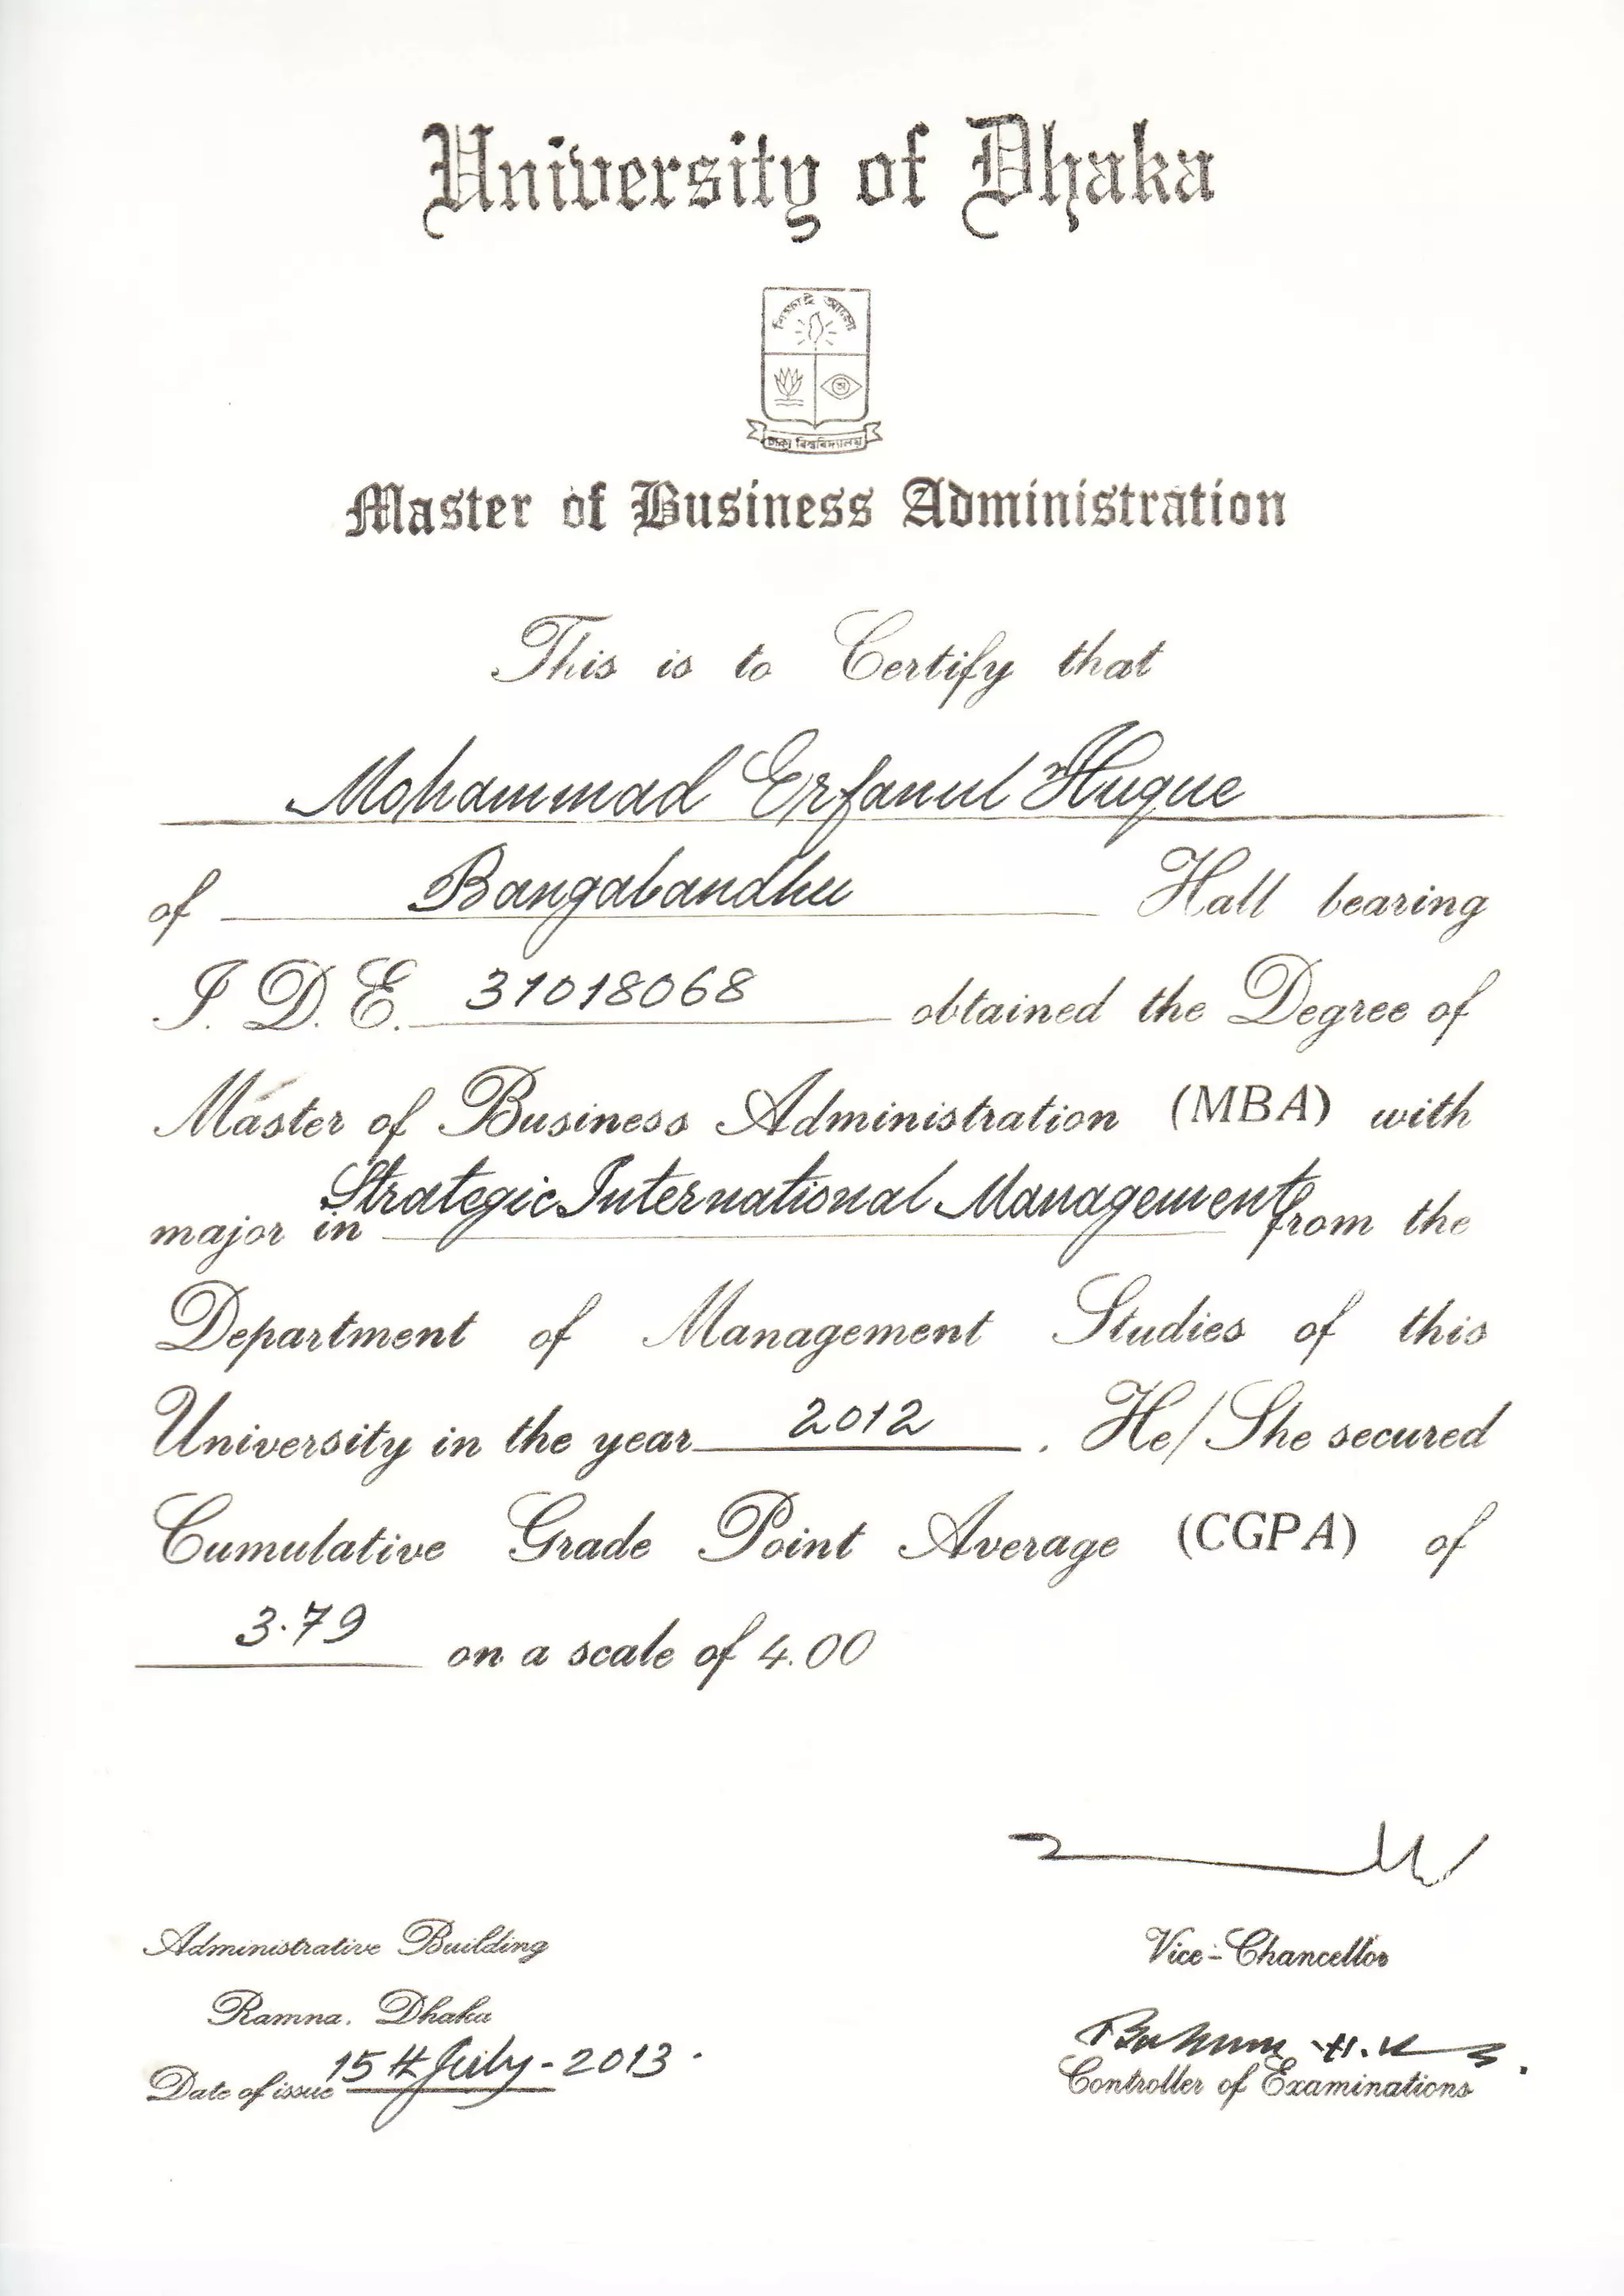 University of Dhaka
শিক্ষাই আলো
অ
ঢাকা বিশ্ববিদ্যালয়
Master of Business Administration
This is to Certify that
Mohammad Erfanul Huque
of Bangabandhu Hall bearing
I. D. E. 31018068 obtained the Degree of
Master of Business Administration (MBA) with
major in Strategic International Management from the
Department of Management Studies of this
University in the year 2012. He/She secured
Cumulative Grade Point Average (CGPA) of
3.79 on a scale of 4.00
Administrative Building
Vice-Chancellor
Ramna. Dhaka
Date of issue 15th July-2013.
Controller of Examinations